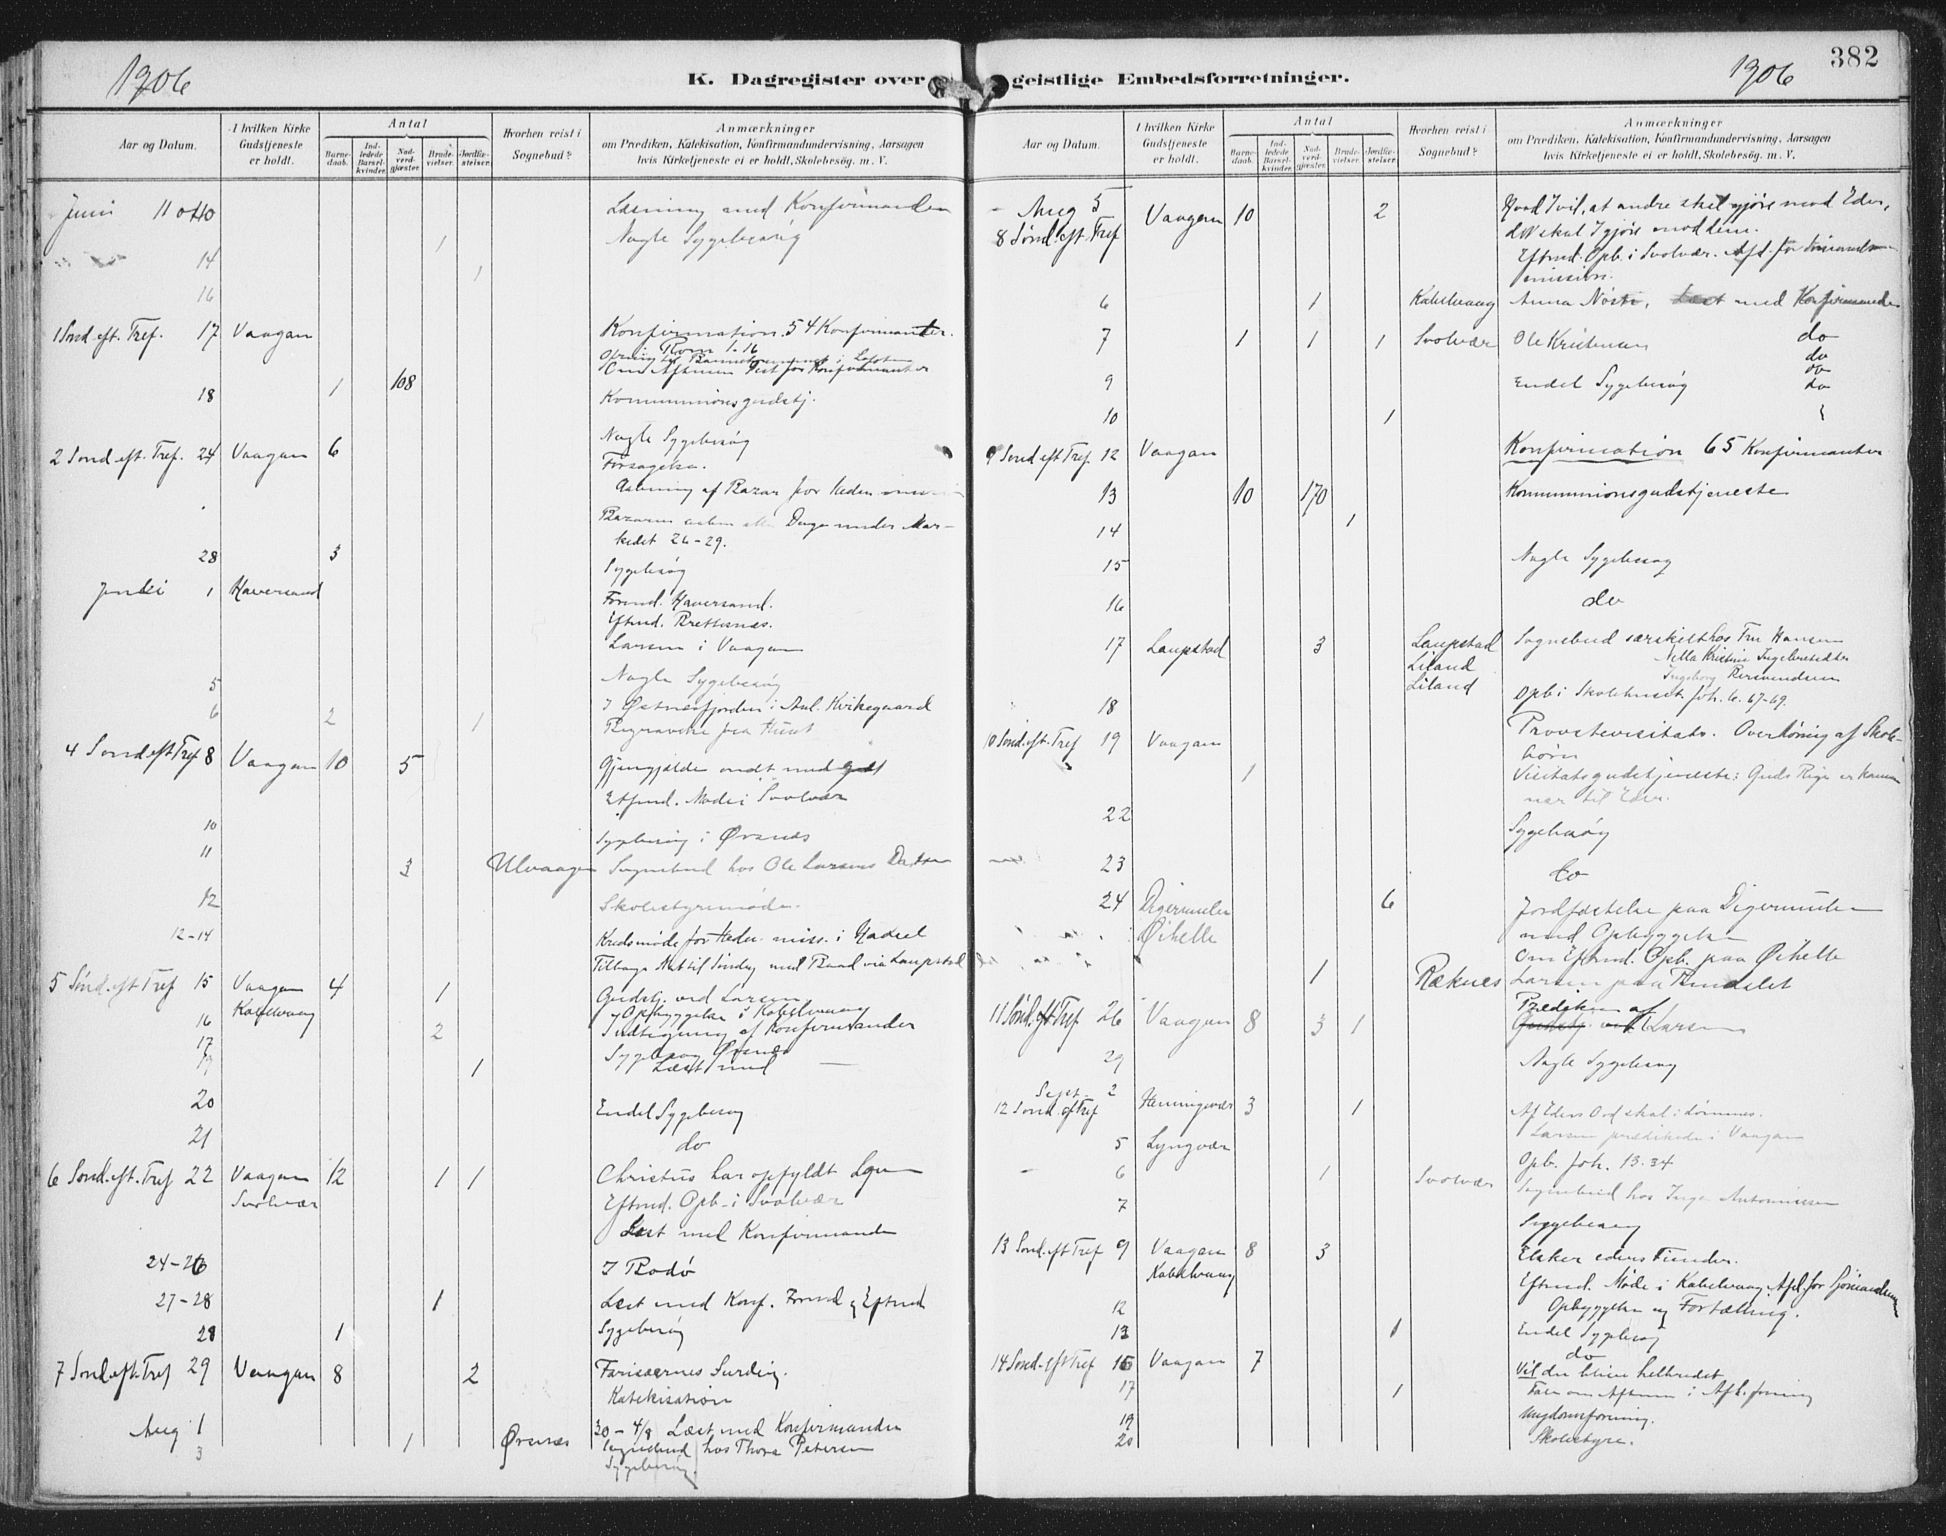 1906
K. Dagregister over
Aar og Datum.
I hvilken Kirke Gudstjeneste er holdt.
Antal
Barnedaab.
Indledede Barselkvinder.
Nadverdgjæster.
Brudevielser.
Jordfæstelser.
Hvorhen reist i Sognebud?
Anmærkninger
om Prædiken, Katekisation, Konfirmandundervisning, Aarsagen
hvis Kirketjeneste ei er holdt, Skolebesög. m. V.
Juni 11 Læsning med Konfirmanden
1 Nogle Sygebesøg
14 1
16
1 Sønd eft. Tref. 17 Vaagan Konfirmation. 54 Konfirmanter.
Rom 1-16
18 1 108 Kommunionsgudstj.
Nogle Sygebesøg
2 Sønd eft. Tref. 24 Vaagan 6 Forsagelse.
Aabning af Bazar for Heden
Bazaren Dage under Mar-
kedet 26-29.
28 3 Sygebesøg
Juli 1 Haversand Formd. Haversand.
Eftmd. Brettesnes.
Larsen i Vaagan
5 Nogle Sygebesøg
6 2 1 I Østnesfjorden i Anl. Kirkegaard
Begravelse fra Huset
4 Sønd eft Tref 8 Vaagan 10 5 Gjengjælde ondt med godt
Eftmd. Møde i Svolvær
10 Sygebesøg i Ørsnes
11 3 Ulvaagen Sognebud hos Ole Larsens Datter
12 Skolestyremøde.
12-14 Kredsmøde for Heden. miss. i Hadsel
Tilbage Nat til Søndag med Baad via Laupstad
5 Sønd. eft Tref 15 Vaagan 4 1 Gudstj. ved Larsen
Kabelvaag Opbyggelse i Kabelvaag
16 2 Indtegning af Konfirmander
17 Sygebesøg Ørsnes
1 Læst med
20 Endel Sygebesøg
21 do
6 Sønd. eft. Tref 22 Vaagan 12 1 1 Christus har opfyldt Loven
Svolvær Eftmd. Opb. i Svolvær
Læst med Konfirmanden
24-26 I Bodø
27-28 1 Læst med Konf. Formd og Eftmd
28 1 Sygebesøg
7 Sønd. eft. Tref 29 Vaagan 8 2 Farisæernes Surdeig.
Katekisation
Aug 1 30 - 4/8 Læst med Konfirmanden
3 1 Ørsnes Sognebud hos Thora Petersen
Sygebesøg.
1906
382
geistlige Embedsforretninger.
Aar og Datum.
I hvilken Kirke Gudstjeneste er holdt.
Antal
Barnedaab.
Indledede Barselkvinder.
Nadverdgjæster.
Brudevielser.
Jordfæstelser.
Hvorhen reist i Sognebud?
Anmærkninger
om Prædiken, Katekisation, Konfirmandundervisning, Aarsagen
hvis Kirketjeneste ei er holdt, Skolebesög. m. V.
Aug 5 Vaagan 10 2 Hvad I vil, at andre skal gjøre mod Eder,
8 Sønd. eft. Tref det skal I gjøre mod dem.
Eftmd. Opb. i Svolvær. Afd. for Sømands-
mission.
6 1 Kabelvaag Anna med Konfirmanden
7 1 1 1 Svolvær Ole Kristensen do
do
9 Endel Sygebesøg do
10 1
9 Sønd eft Tref 12 Vaagan Konfirmation 65 Konfirmanter
13 10 170 Kommunionsgudstjeneste
14 1
15 Nogle Sygebesøg
16 do
17 Laupstad 3 Laupstad Sognebud særskilt hos Fru Hansen
Liland Kristine
Liland Ingeborg
18 Opb i Skolehuset Joh. 6. 67-69.
10 Sønd. eft. Tref 19 Vaagan Provstevisitats. Overhøring af Skole-
børn
1 Visitatsgudstjeneste: Guds Rige er kom-
met til Eder.
22 Sygebesøg
23 do
24 Digermulen 6 Jordfæstelse paa Digermulen
Ørhelle med Opbyggelse
Om Eftmd. Opb. paa Ørhelle
1 Ræknes Larsen paa
11 Sønd. eft Tref 26 Vaagan 8 3 1 Prediken af Larsen
29 Nogle Sygebesøg
Sept. 2 Henningsvær 3 1 Af Eders Ord skal i dømmes.
12 Sønd. eft Tref Larsen prædikede i Vaagan
5 Lyngvær Opb. Joh. 13.34
6 1 Svolvær Sognebud hos Inga Antonissen
7 Sygebesøg
13 Sønd. eft Tref 9 Vaagan 8 3 Elsker eders Fiender.
Kabelvaag Eftmd. Møde i Kabelvaag Afd. for Sjømandsm
12 Opbyggelse og Fortælling.
13 1 Endel Sygebesøg
do
14 Sønd. eft Tref 16 Vaagan 7 Vil du blive helbredet
17 1 Tale om Aftenen i Afh. forening
19 Ungdomsforening.
20 Skolestyre.